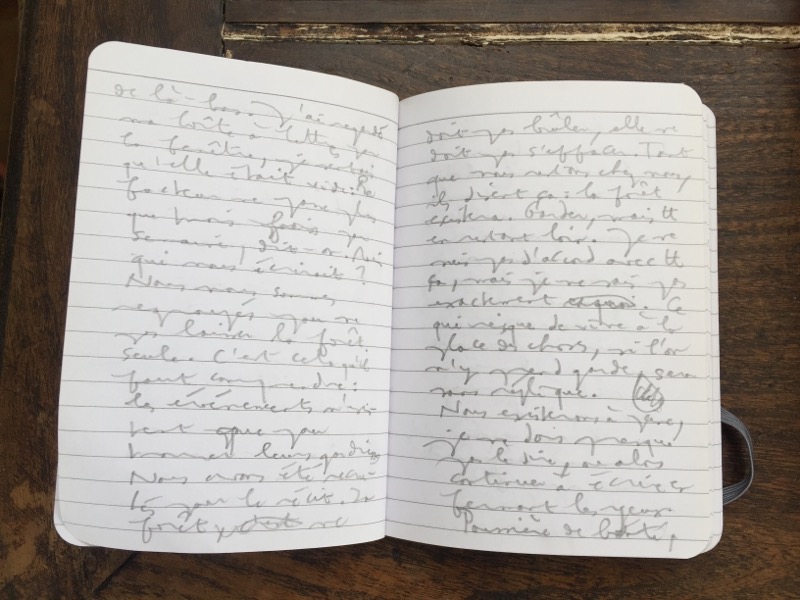 de là-bas. J'ai regardé
ma boîte à lettres par
la fenêtre,
qu'elle était vide. Le
facteur ne passe plus
que trois fois par
semaine, dit-on. Mais
qui nous écrirait ?
Nous nous sommes
regroupés pour ne
pas laisser la forêt
seule. C'est cela qu'il
faut comprendre :
les événements n'exis-
tent que pour
leurs gardiens
Nous avons été recru-
tés pour le récit. La
forêt ne
doit pas brûler, elle ne
doit pas s'effacer. Tant
que nous restons chez nous,
ils disent ça : la forêt
existera. Garder, mais tt
en restant loin. Je ne
suis pas d'accord avec tt
ça, mais je ne sais pas
exactement. Ce
qui risque de vivre à la
place des choses, si l'on
n'y prend garde, sera
sans réplique.
Nous existerons à
je ne dois presque
pas le dire, ou alors
continuer à écrire
fermant les yeux
Poussière de